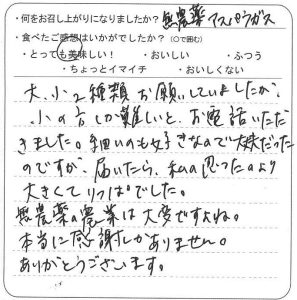 ・何をお召し上がりになりましたか？無農薬アスパラガス
・食べたご感想はいかがでしたか？（○で囲む）
・とっても美味しい！　・おいしい　・ふつう
・ちょっとイマイチ　・おいしくない
大、小2種類お願いしていましたが、
小の方しか難しいと、お電話いただ
きました。細いのも好きなので大丈夫だった
のですが、届いたら、私の思ったのより
大きくてりっぱでした。
無農薬の農業は大変ですよね。
本当に感謝しかありません。
ありがとうございます。